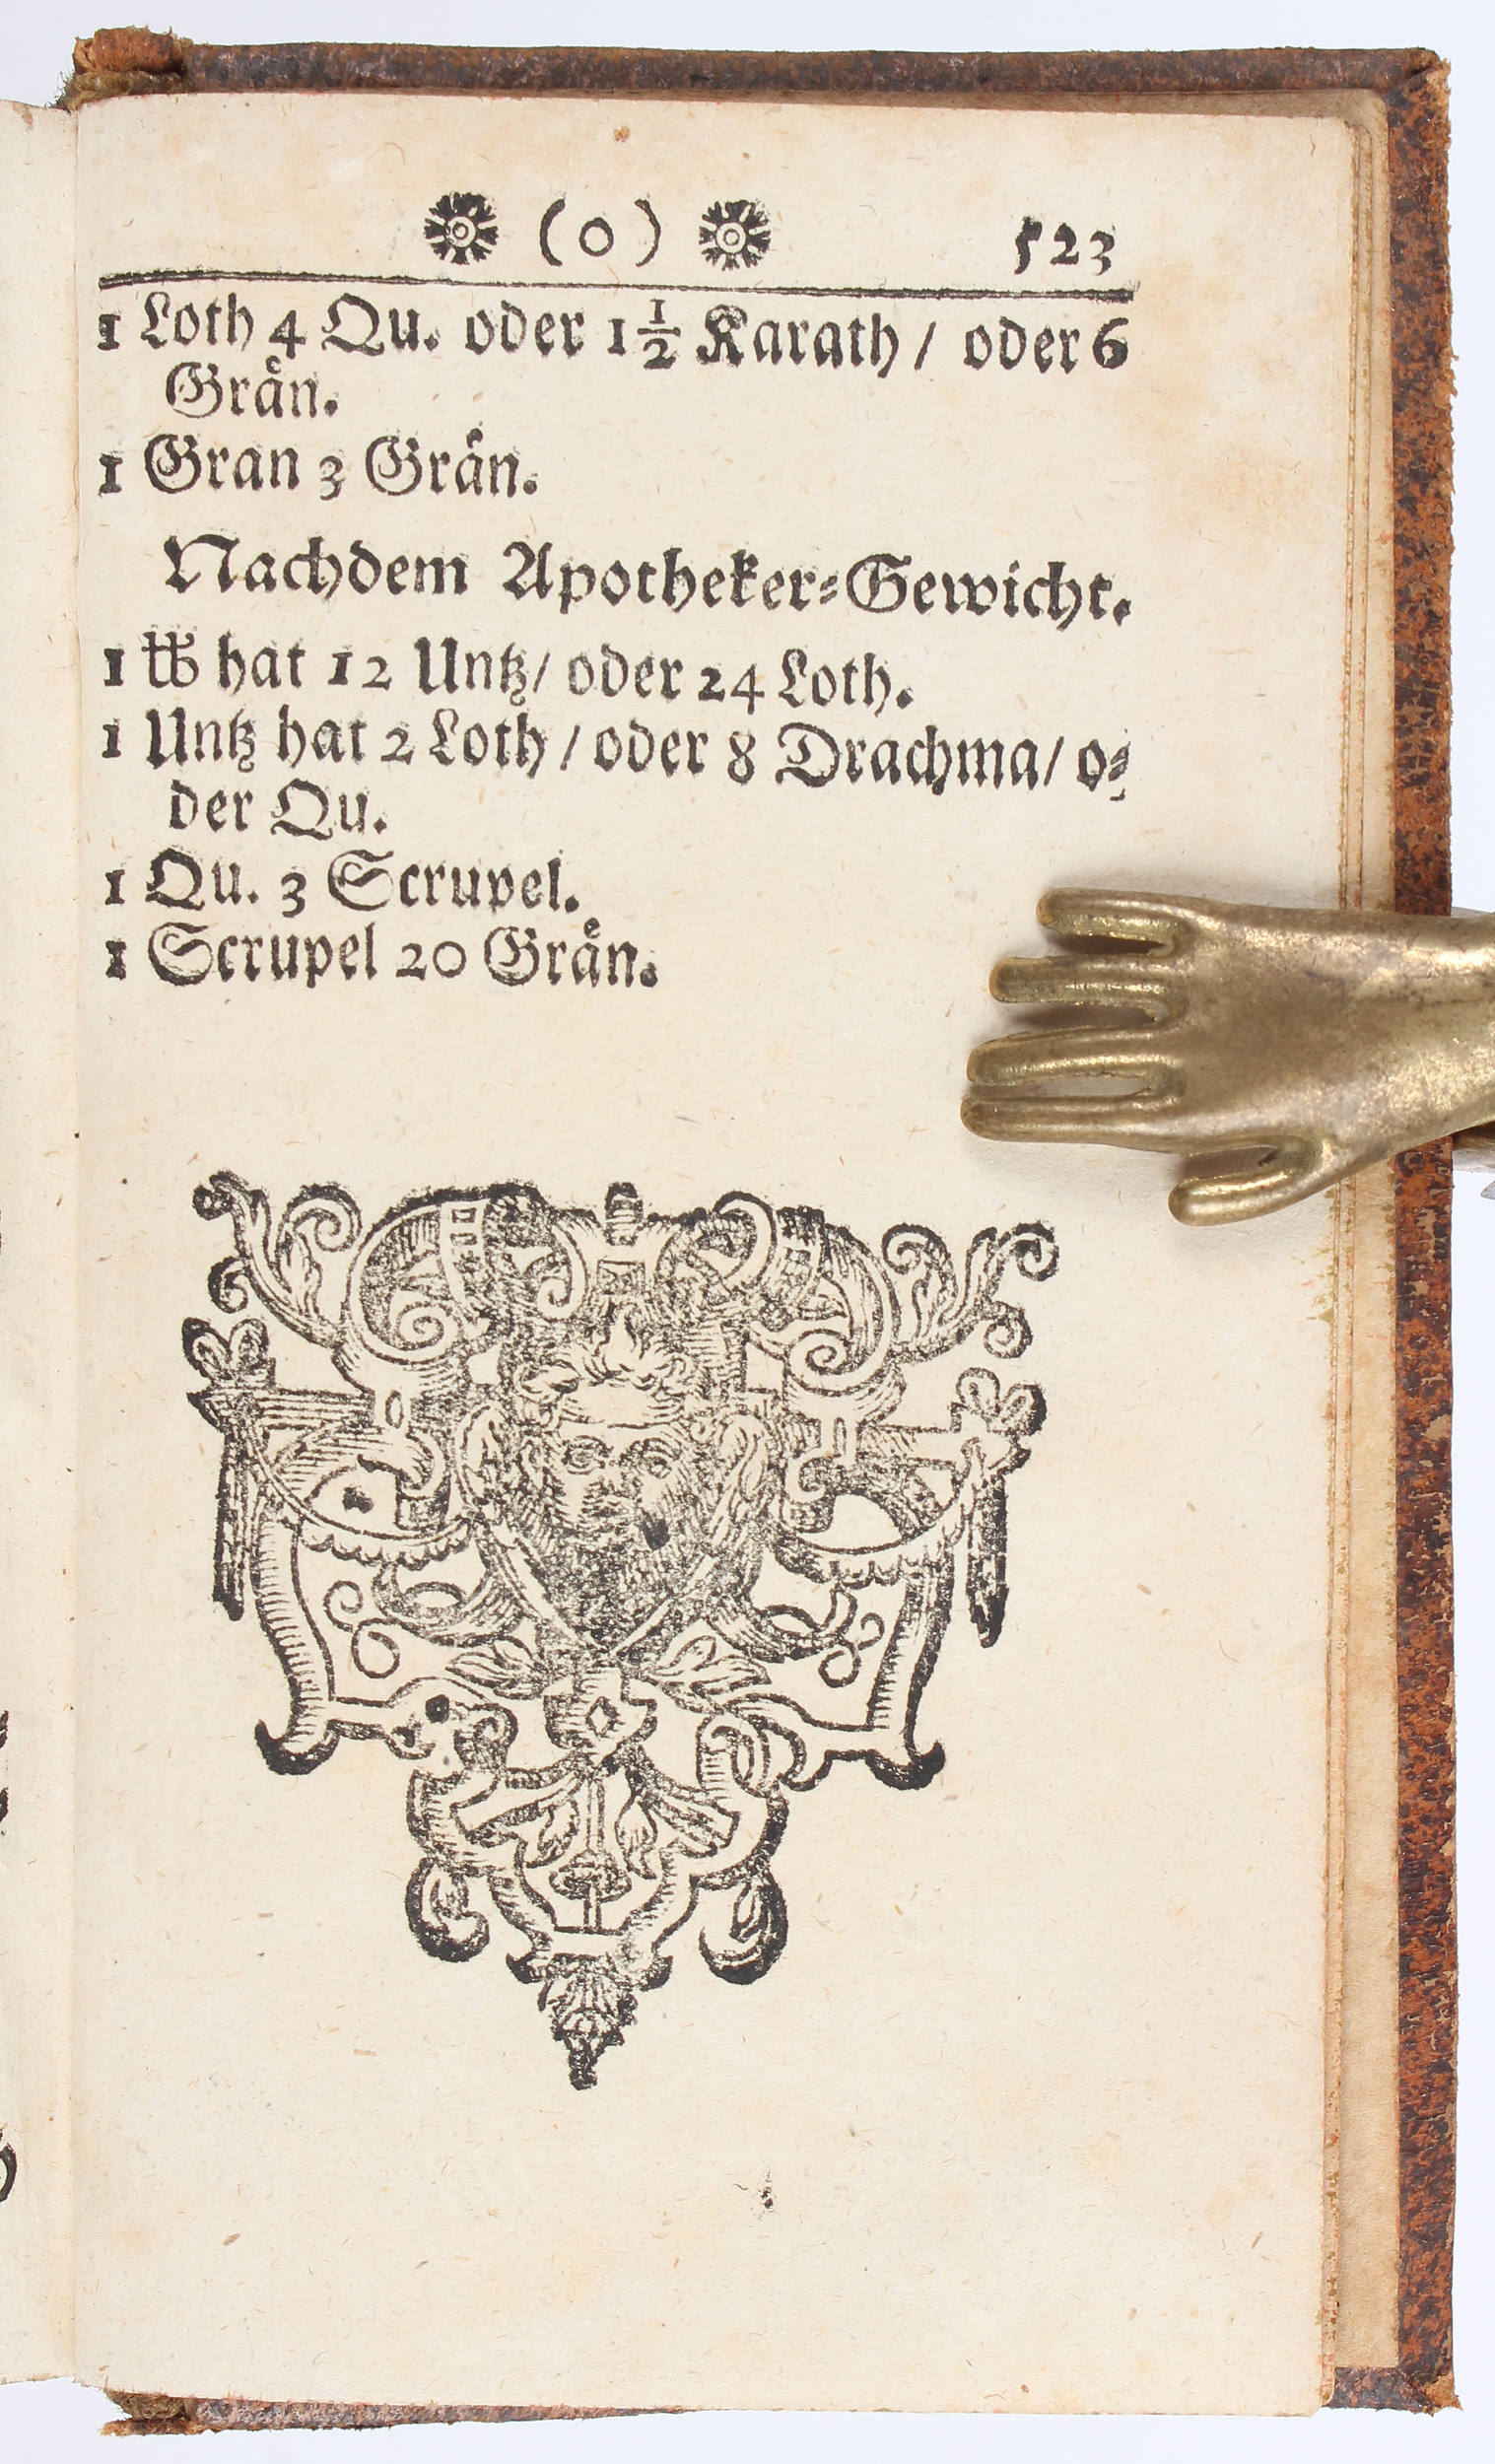 (o) 523
1 Loth 4 Qu. oder 1 1/2 Karath / oder 6
Graͤn.
1 Gran 3 Graͤn.
Nachdem Apotheker⸗Gewicht.
1 ℔ hat 12 Untz / oder 24 Loth.
1 Untz hat 2 Loth / oder 8 Drachma / o⸗
der Qu.
1 Qu. 3 Scrupel.
1 Scrupel 20 Graͤn.